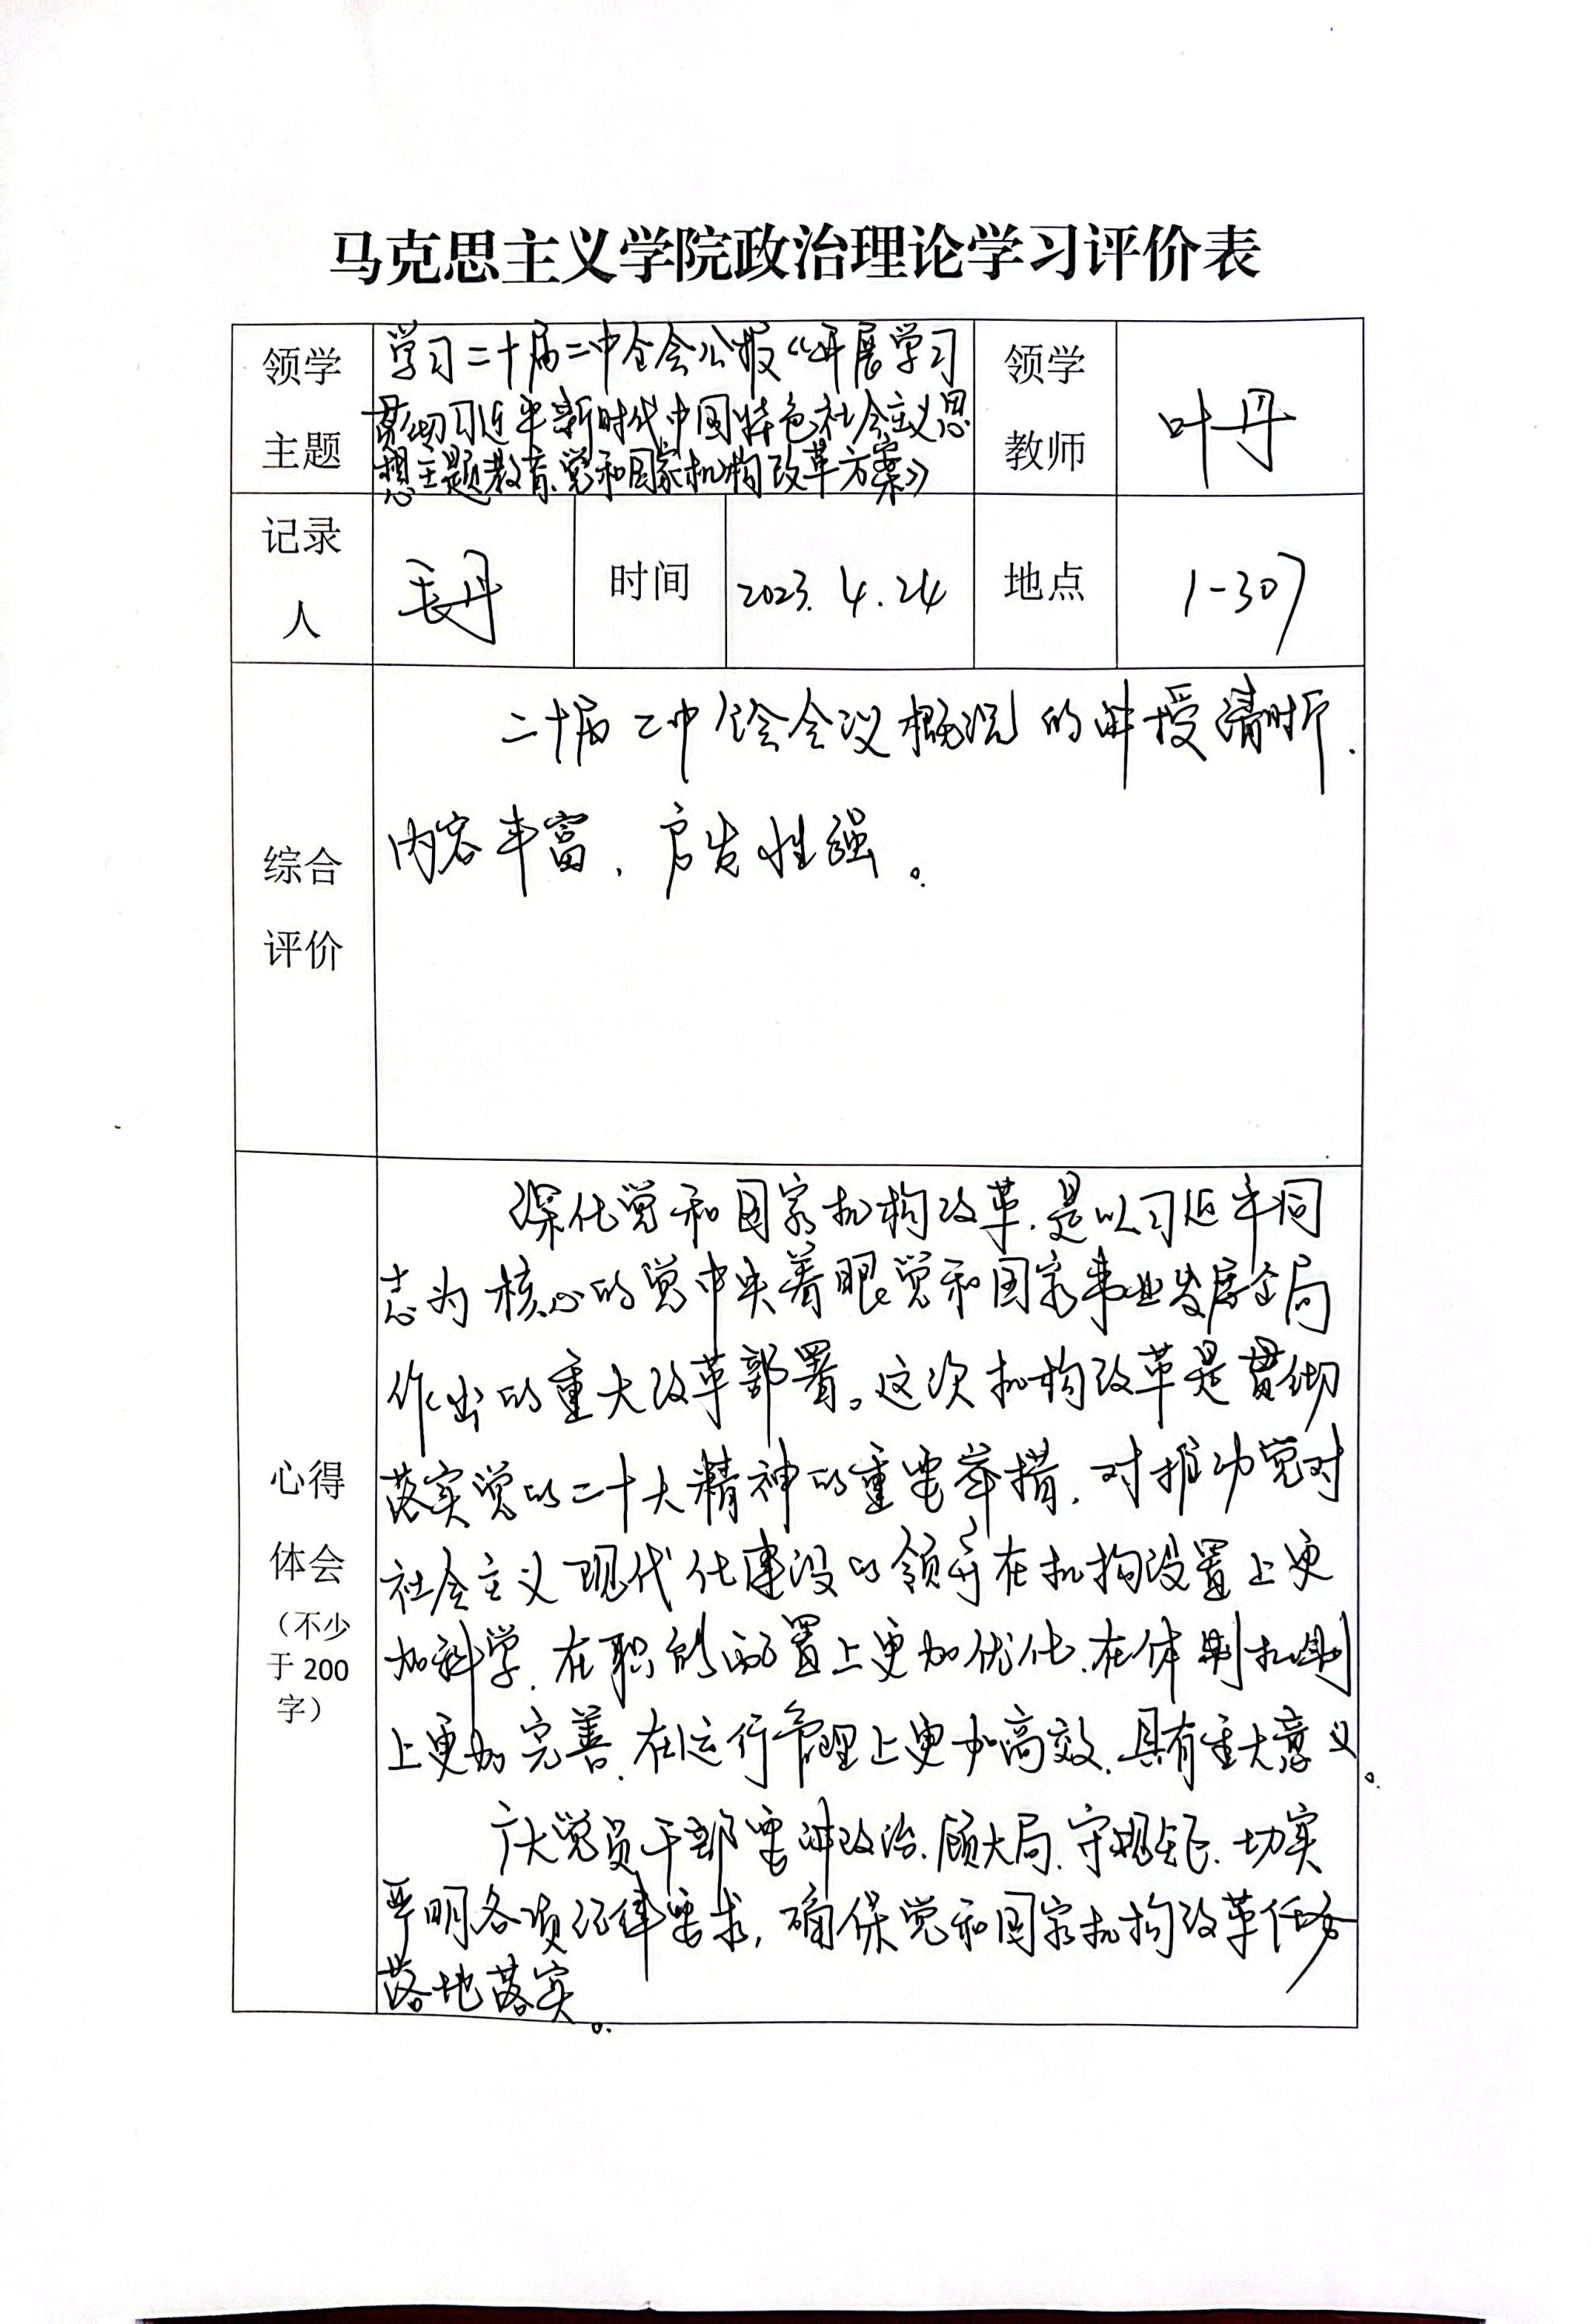 马克思主义学院政治理论学习评价表
领学
主题
学习二十届二中全会公报《开展学习
贯彻习近平新时代中国特色社会主义思
想主题教育、党和国家机构改革方案》
领学
教师
叶丹
记录
人
丹
时间
2023.4.24
地点
1-307
综合
评价
二十届二中全会会议概况的讲授清晰、
内容丰富、启发性强。
心得
体会
（不少
于 200
字）
深化党和国家机构改革、是以习近平同
志为核心的党中央着眼党和国家事业发展全局
作出的重大改革部署。这次机构改革是贯彻
落实党的二十大精神的重要举措、对推动党对
社会主义现代化建设的领导在机构设置上更
加科学、在职能配置上更加优化、在体制机制
上更加完善、在运行管理上更加高效、具有重大意义。
广大党员干部要讲政治、顾大局、守规矩、切实
严明各项纪律要求，确保党和国家机构改革任务
落地落实。